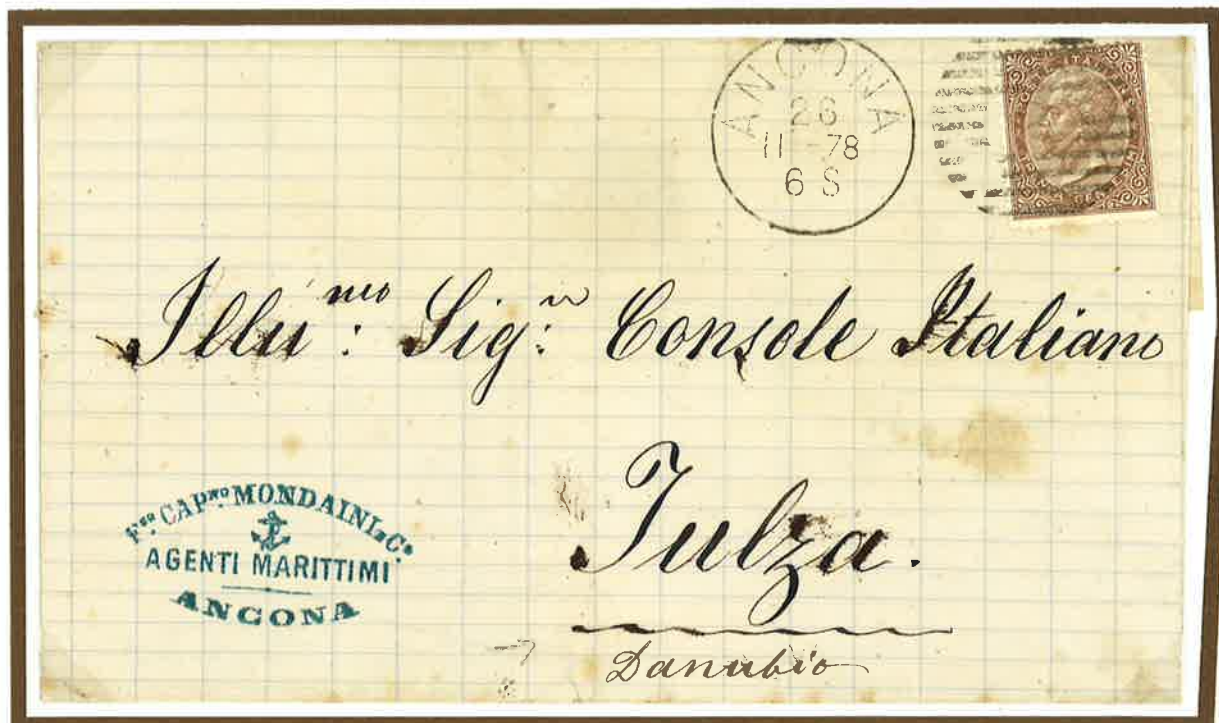 ANCONA
26
11 - 78
6 S
Illu.mo Sig.r Console Italiano
Tulza.
Danubio
F.sco CAP.no MONDAINI e C.o
AGENTI MARITTIMI
ANCONA